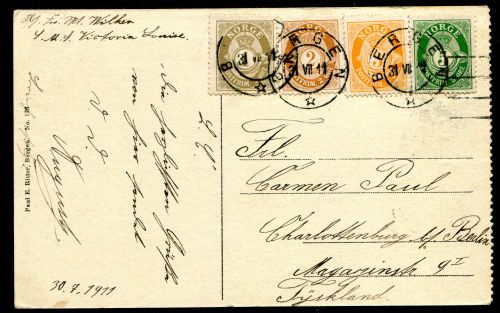 Frl. Mt. Walker
S.M.S. Victoria Louise.
NORGE
NORGE
NORGE
NORGE
2
5
BERGEN
31 VII 11
BERGEN
31 VII 11
Paul E. Ritter, Bergen. No. 126
Die herzlichsten Grüße
von hier sendet
D. O.
August
30.7.1911
Frl.
Carmen Paul
Charlottenburg b/ Berlin
Magazinstr 9 I
Tyskland.